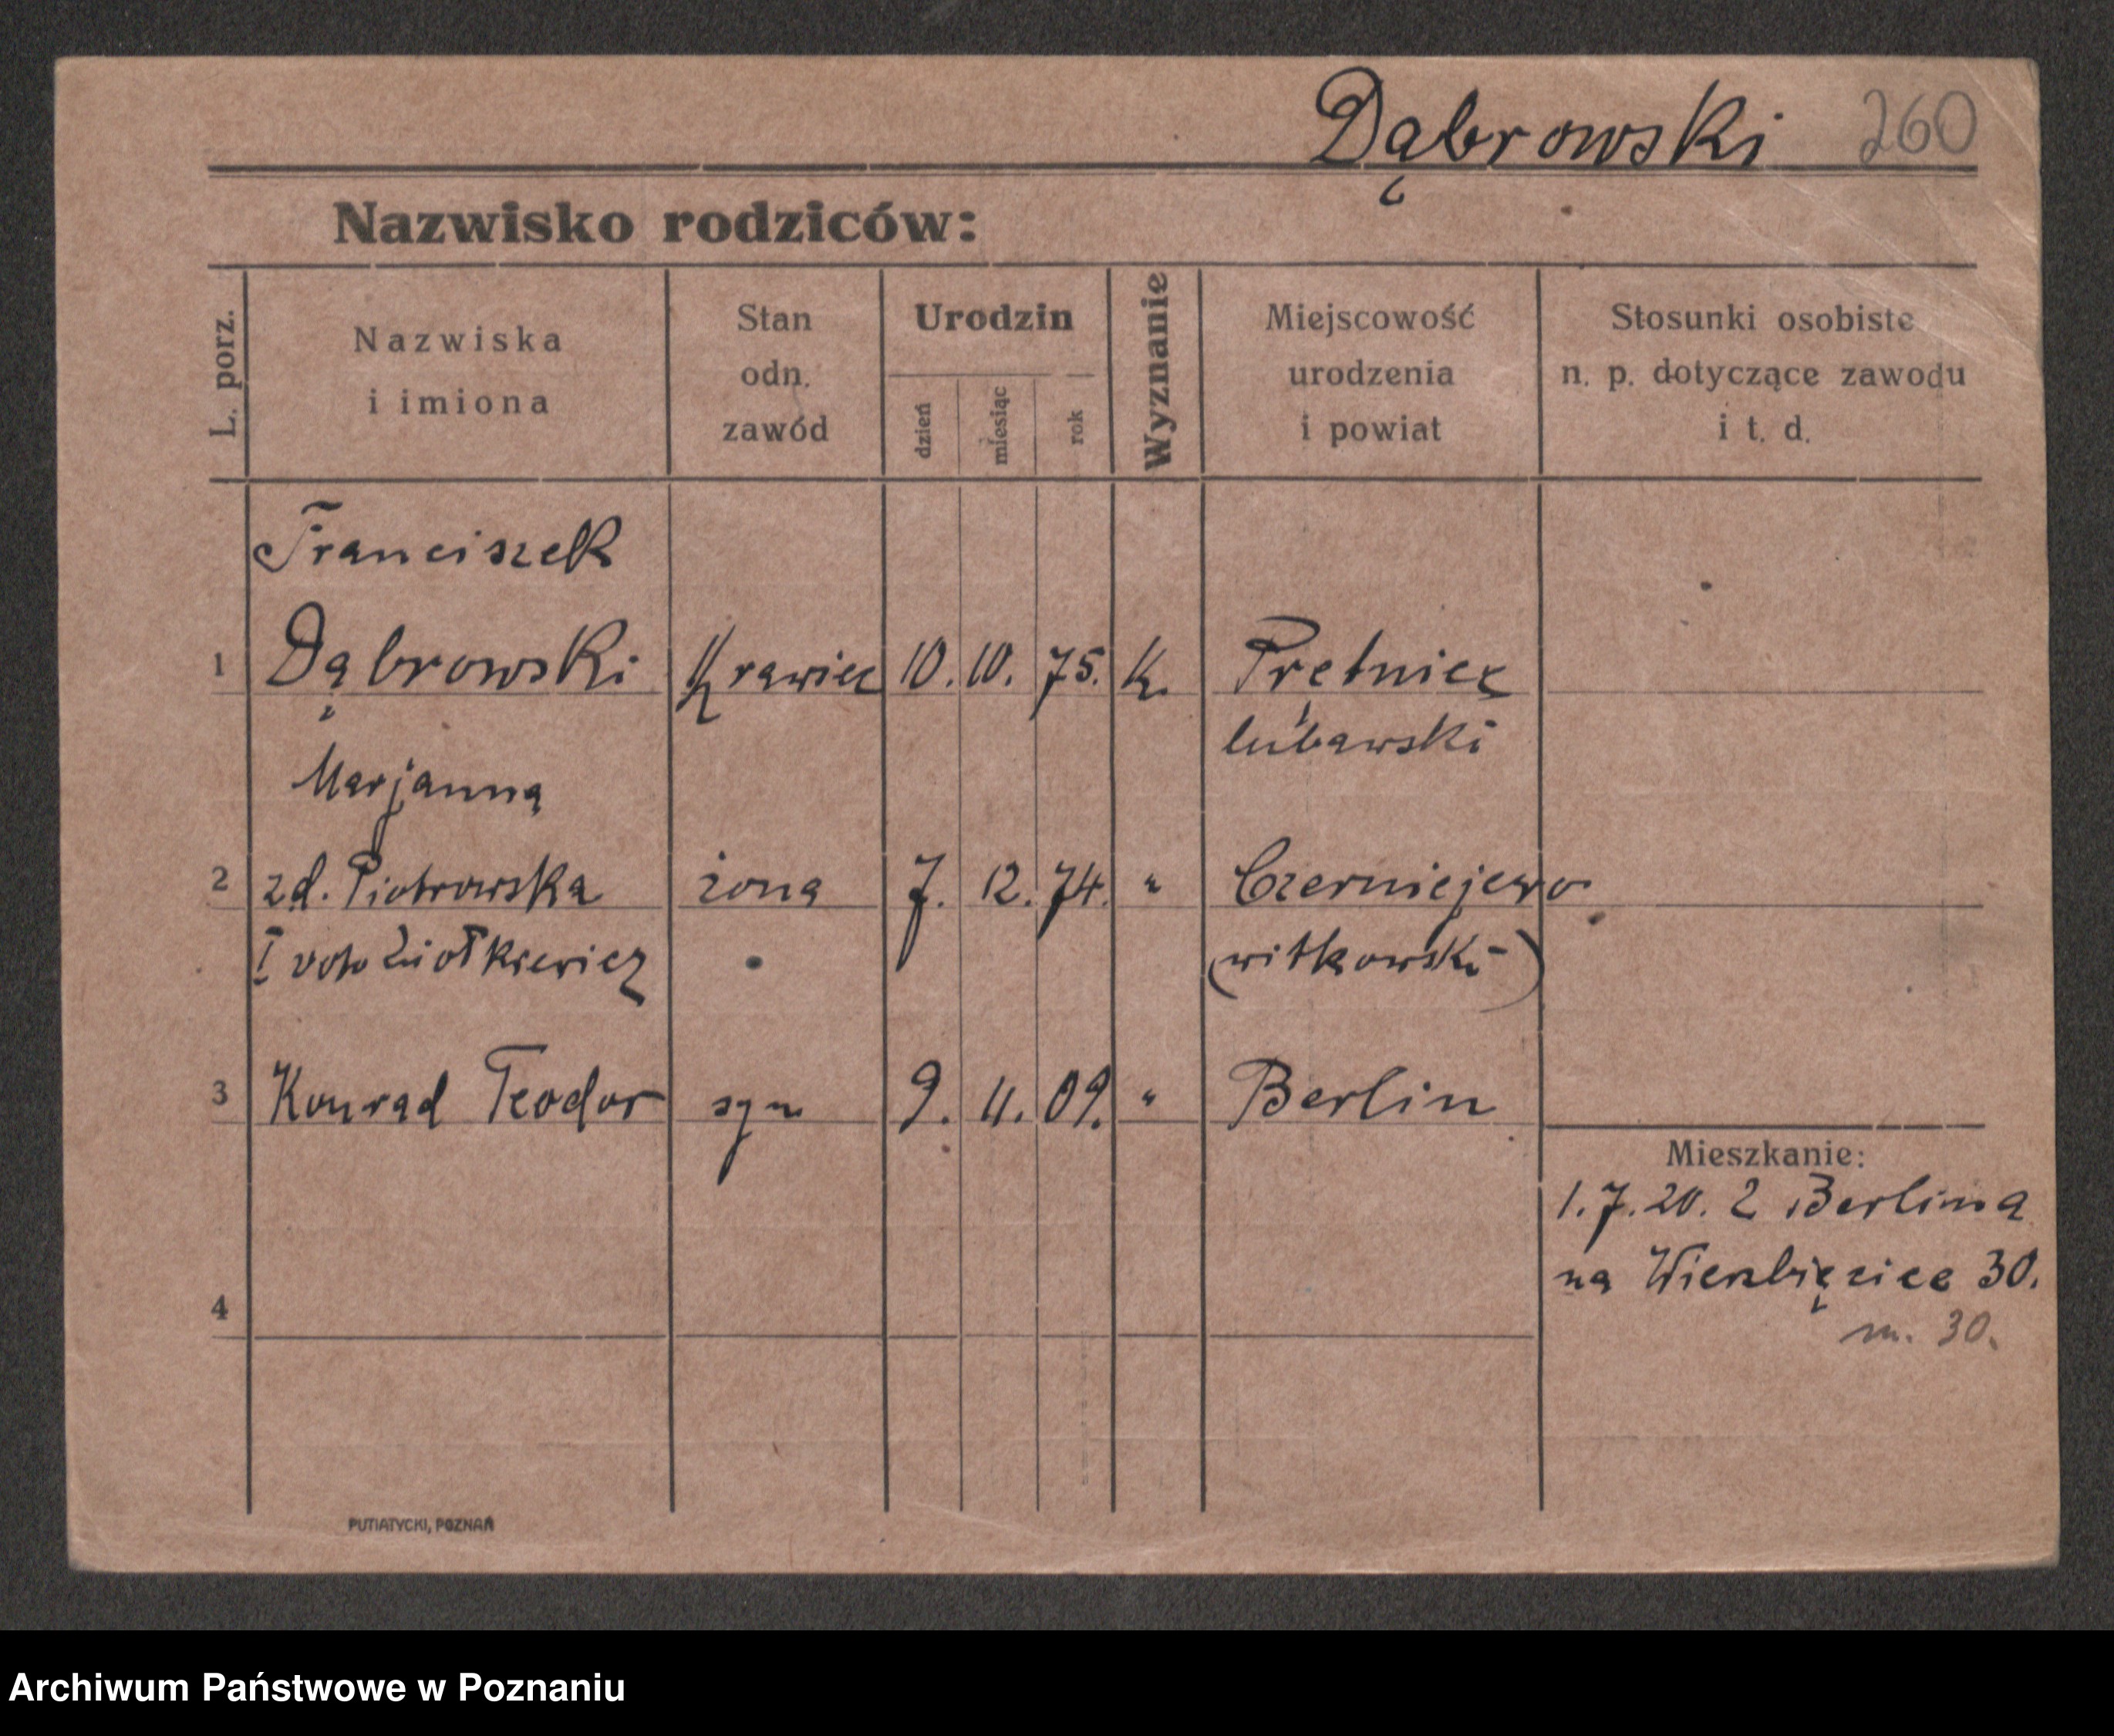 Dąbrowski 260
Nazwisko rodziców:
L. porz.
Nazwiska
i imiona
Stan
odn.
zawód
Urodzin
dzień
miesiąc
rok
Wyznanie
Miejscowość
urodzenia
i powiat
Stosunki osobiste
n. p. dotyczące zawodu
i t. d.
Franciszek
1 Dąbrowski Krawiec 10. 10. 75. K.
lubawski
Marjanna
2 zd. Piotrowska żona 7. 12. 74. " Czerniejewo
I voto Ziółkiewicz (witkowski)
3 Konrad Teodor syn 9. 11. 09. " Berlin
Mieszkanie:
1.7.20. z Berlina
na Wierzbięcice 30.
m. 30.
4
PUTIATYCKI, POZNAŃ
Archiwum Państwowe w Poznaniu